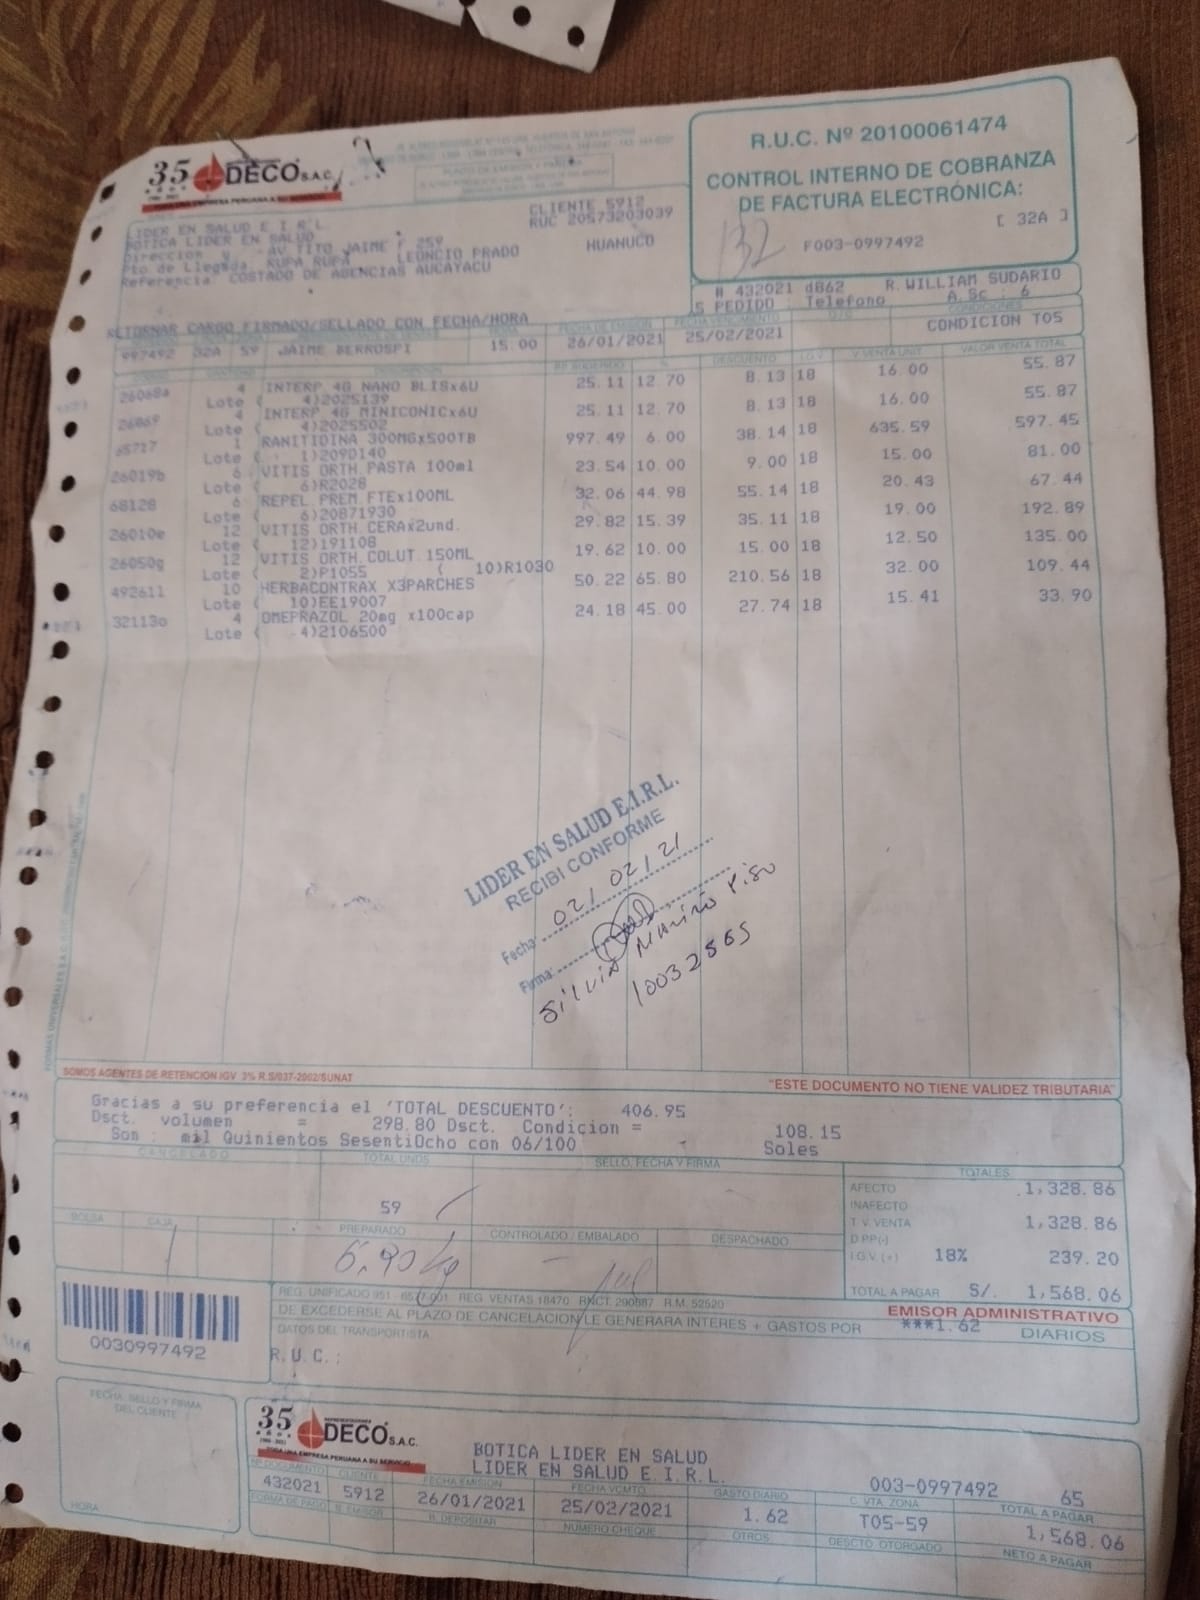 35 AÑOS DECO S.A.C.
TODA UNA EMPRESA PERUANA A SU SERVICIO
R.U.C. Nº 20100061474
CONTROL INTERNO DE COBRANZA
DE FACTURA ELECTRÓNICA:
[ 32A ]
132 F003-0997492
CLIENTE 5912
RUC 20573203039
LIDER EN SALUD E.I.R.L.
BOTICA LIDER EN SALUD
Direccion y AV. TITO JAIME F 259 HUANUCO
Pto de Llegada: RUPA RUPA LEONCIO PRADO
Referencia: COSTADO DE AGENCIAS AUCAYACU
# 432021 d862 R.WILLIAM SUDARIO
S PEDIDO : Telefono A.Sc : 6
RETORNAR CARGO FIRMADO/SELLADO CON FECHA/HORA
FECHA DE EMISIÓN FECHA VENCIMIENTO O/C CONDICIONES
997492 32A 59 JAIME BERROSPI 15.00 26/01/2021 25/02/2021 CONDICION T05
DESCRIPCION % DESCUENTO I.G.V V.VENTA UNIT. VALOR VENTA TOTAL
26068a 4 INTERP 4G NANO BLISx6U 25.11 12.70 8.13 18 16.00 55.87
Lote ( 4)2025139
26069 4 INTERP 4G MINICONICx6U 25.11 12.70 8.13 18 16.00 55.87
Lote ( 4)2025502
65717 1 RANITIDINA 300MGx500TB 997.49 6.00 38.14 18 635.59 597.45
Lote ( 1)2090140
26019b 6 VITIS ORTH.PASTA 100ml 23.54 10.00 9.00 18 15.00 81.00
Lote ( 6)R2028
68128 6 REPEL PREM FTEx100ML 32.06 44.98 55.14 18 20.43 67.44
Lote ( 6)20871930
26010e 12 VITIS ORTH.CERAx2und. 29.82 15.39 35.11 18 19.00 192.89
Lote ( 12)191108
26050g 12 VITIS ORTH.COLUT.150ML 19.62 10.00 15.00 18 12.50 135.00
Lote ( 2)P1055 ( 10)R1030
492611 10 HERBACONTRAX X3PARCHES 50.22 65.80 210.56 18 32.00 109.44
Lote ( 10)EE19007
32113o 4 OMEPRAZOL 20mg x100cap 24.18 45.00 27.74 18 15.41 33.90
Lote ( 4)2106500
LIDER EN SALUD E.I.R.L.
RECIBI CONFORME
Fecha: 02/02/21
Firma:
Silvia Mariño Piso
10032565
SOMOS AGENTES DE RETENCION IGV 3% R.S/037-2002/SUNAT
"ESTE DOCUMENTO NO TIENE VALIDEZ TRIBUTARIA"
Gracias a su preferencia el 'TOTAL DESCUENTO': 406.95
Dsct. volumen = 298.80 Dsct. Condicion = 108.15
Son : mil Quinientos SesentiOcho con 06/100 Soles
CANCELADO TOTAL UNDS SELLO, FECHA Y FIRMA TOTALES
59
AFECTO 1,328.86
INAFECTO
T. V. VENTA 1,328.86
D.PP(-)
I.G.V. (+) 18% 239.20
TOTAL A PAGAR S/. 1,568.06
BOLSA CAJA PREPARADO CONTROLADO / EMBALADO DESPACHADO
1 6,90 kg
REG. UNIFICADO 951 - 8577-001 REG. VENTAS 18470 RNCT. 290887 R.M. 52520
EMISOR ADMINISTRATIVO
DE EXCEDERSE AL PLAZO DE CANCELACION LE GENERARA INTERES + GASTOS POR ***1.62 DIARIOS
DATOS DEL TRANSPORTISTA
R.U.C.:
0030997492
FECHA, SELLO Y FIRMA
DEL CLIENTE
HORA
35 AÑOS REPRESENTACIONES DECO S.A.C.
TODA UNA EMPRESA PERUANA A SU SERVICIO
BOTICA LIDER EN SALUD
LIDER EN SALUD E.I.R.L.
003-0997492 65
Nº DOCUMENTO CLIENTE FECHA EMISIÓN FECHA VCMTO. GASTO DIARIO C. VTA. ZONA TOTAL A PAGAR
432021 5912 26/01/2021 25/02/2021 1.62 T05-59 1,568.06
FORMA DE PAGO B. EMISOR B. DEPOSITAR NUMERO CHEQUE OTROS DESCTO. OTORGADO NETO A PAGAR